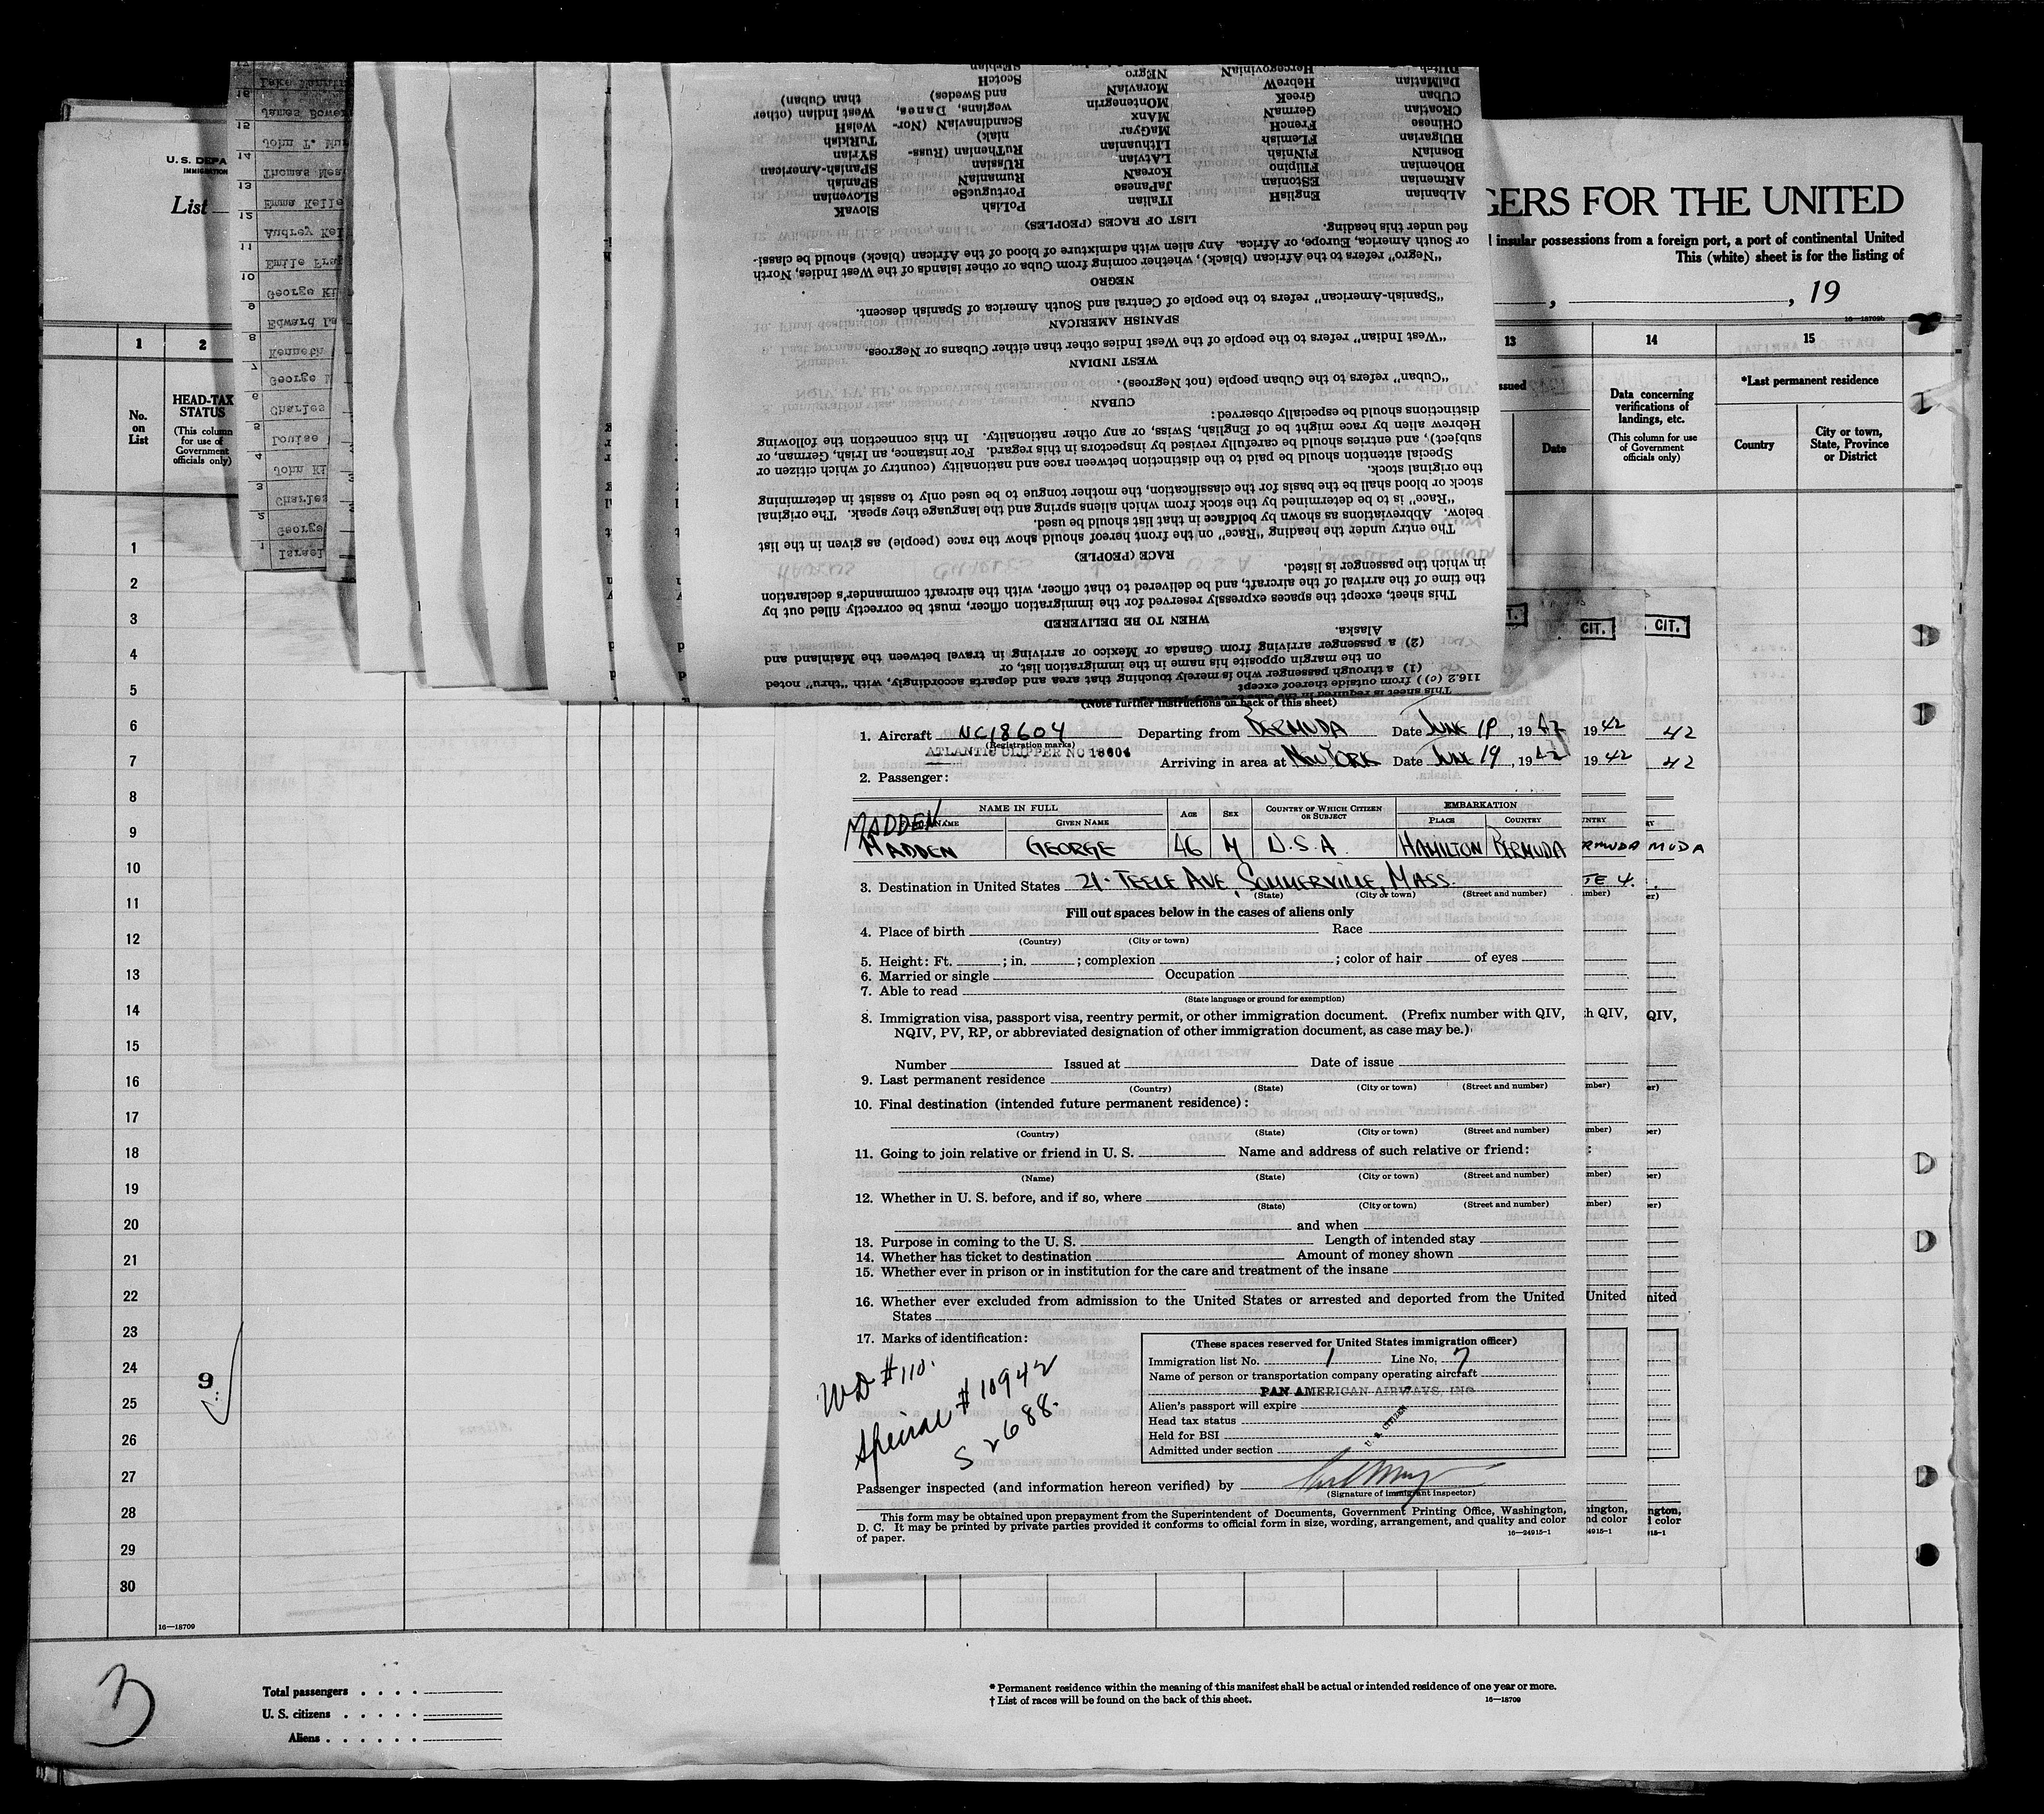 U. S. DEPA
IMMIGRATION
List
GERS FOR THE UNITED
insular possessions from a foreign port, a port of continental United
This (white) sheet is for the listing of
, 19
16—18709b
1 2 13 14 15
No. on List
HEAD-TAX STATUS
(This column for use of Government officials only)
ssued
Date
Data concerning verifications of landings, etc.
(This column for use of Government officials only)
*Last permanent residence
Country
City or town, State, Province or District
16 James Bower
15 John T. Mur
14 Thomas Mea
13 Emma Kelle
12 Audrey Kel
11 Emile Fra
10 George Ki
9 Edward La
8 Kenneth
7 George
6 Charles
5 Louise
4 John Ki
3 Charles
2 George
1 Israel
This sheet is required in the case of every
116.2 (o)) from outside thereof except
(1) a through passenger who is merely touching that area and departs accordingly, with "thru" noted
on the margin opposite his name in the immigration list, or
(2) a passenger arriving from Canada or Mexico or arriving in travel between the Mainland and
Alaska.
WHEN TO BE DELIVERED
This sheet, except the spaces expressly reserved for the immigration officer, must be correctly filled out by
the time of the arrival of the aircraft, and be delivered to that officer, with the aircraft commander's declaration
in which the passenger is listed.
RACE (PEOPLE)
The entry under the heading "Race" on the front hereof should show the race (people) as given in the list
below. Abbreviations as shown by boldface in that list should be used.
"Race" is to be determined by the stock from which aliens spring and the language they speak. The original
stock or blood shall be the basis for the classification, the mother tongue to be used only to assist in determining
the original stock.
Special attention should be paid to the distinction between race and nationality (country of which citizen or
subject), and entries should be carefully revised by inspectors in this regard. For instance, an Irish, German, or
Hebrew alien by race might be of English, Swiss, or any other nationality. In this connection the following
distinctions should be especially observed:
CUBAN
"Cuban" refers to the Cuban people (not Negroes).
WEST INDIAN
"West Indian" refers to the people of the West Indies other than either Cubans or Negroes.
SPANISH AMERICAN
"Spanish-American" refers to the people of Central and South America of Spanish descent.
NEGRO
"Negro" refers to the African (black), whether coming from Cuba or other islands of the West Indies, North
or South America, Europe, or Africa. Any alien with admixture of blood of the African (black) should be classi-
fied under this heading.
LIST OF RACES (PEOPLES)
ALbanian EngliSH ITalian PoLish SlovaK
ARmenian EStonian JaPanese Portuguese SLOvenian
BOhemian FIlipino KoreaN RumaniaN SPanish
BosniaN FiNnish LAtvian RUssian SPanish-American
BUlgarian FLemish LIthuanian RuThenian (Russ- SYrian
CHinese FrencH MaGyar niak) TuRkish
CRoatian GermaN MAnx ScandinaviaN (Nor- WelsH
CUban GreeK MOntenegrin wegians, Danes, West Indian (other
DalMatian HebreW MoraviaN and Swedes) than Cuban)
DUtch HercegoviniaN NEgro ScotcH
SErbian
CIT. CIT.
(Note further instructions on back of this sheet)
1. Aircraft NC18604 Departing from BERMUDA Date JUNE 19, 1942 1942 42
(Registration marks)
ATLANTIC CLIPPER NC 18604
Arriving in area at NEW YORK Date JUNE 19, 1942 1942 42
2. Passenger:
NAME IN FULL AGE SEX COUNTRY OF WHICH CITIZEN OR SUBJECT EMBARKATION
GIVEN NAME PLACE COUNTRY
MADDEN
MADDEN GEORGE 46 M U.S.A. HAMILTON BERMUDA RMUDA MUDA
3. Destination in United States 21- TEELE AVE, SOMMERVILLE, MASS. TE 4.
(State) (City or town) (Street and number)
Fill out spaces below in the cases of aliens only
4. Place of birth Race
(Country) (City or town)
5. Height: Ft. ; in. ; complexion ; color of hair of eyes
6. Married or single Occupation
7. Able to read
(State language or ground for exemption)
8. Immigration visa, passport visa, reentry permit, or other immigration document. (Prefix number with QIV, h QIV, QIV,
NQIV, PV, RP, or abbreviated designation of other immigration document, as case may be.)
Number Issued at Date of issue
9. Last permanent residence
(Country) (State) (City or town) (Street and number)
10. Final destination (intended future permanent residence):
(Country) (State) (City or town) (Street and number)
11. Going to join relative or friend in U. S. Name and address of such relative or friend:
(Name) (State) (City or town) (Street and number)
12. Whether in U. S. before, and if so, where
(State) (City or town) (Street and number)
and when
13. Purpose in coming to the U. S. Length of intended stay
14. Whether has ticket to destination Amount of money shown
15. Whether ever in prison or in institution for the care and treatment of the insane
16. Whether ever excluded from admission to the United States or arrested and deported from the United United nited
States
17. Marks of identification:
WD #110.
Special # 10942
S 2688.
(These spaces reserved for United States immigration officer)
Immigration list No. 1 Line No. 7
Name of person or transportation company operating aircraft
PAN AMERICAN AIRWAYS, INC
Alien's passport will expire
Head tax status
Held for BSI
Admitted under section
U. S. CITIZEN
Passenger inspected (and information hereon verified) by
(Signature of immigrant inspector)
This form may be obtained upon prepayment from the Superintendent of Documents, Government Printing Office, Washington,
D. C. It may be printed by private parties provided it conforms to official form in size, wording, arrangement, and quality and color
of paper. 16—24915-1
1
2
3
4
5
6
7
8
9
10
11
12
13
14
15
16
17
18
19
20
21
22
23
24
9
25
26
27
28
29
30
16—18709
3
Total passengers
U. S. citizens
Aliens
* Permanent residence within the meaning of this manifest shall be actual or intended residence of one year or more.
† List of races will be found on the back of this sheet. 16—18709